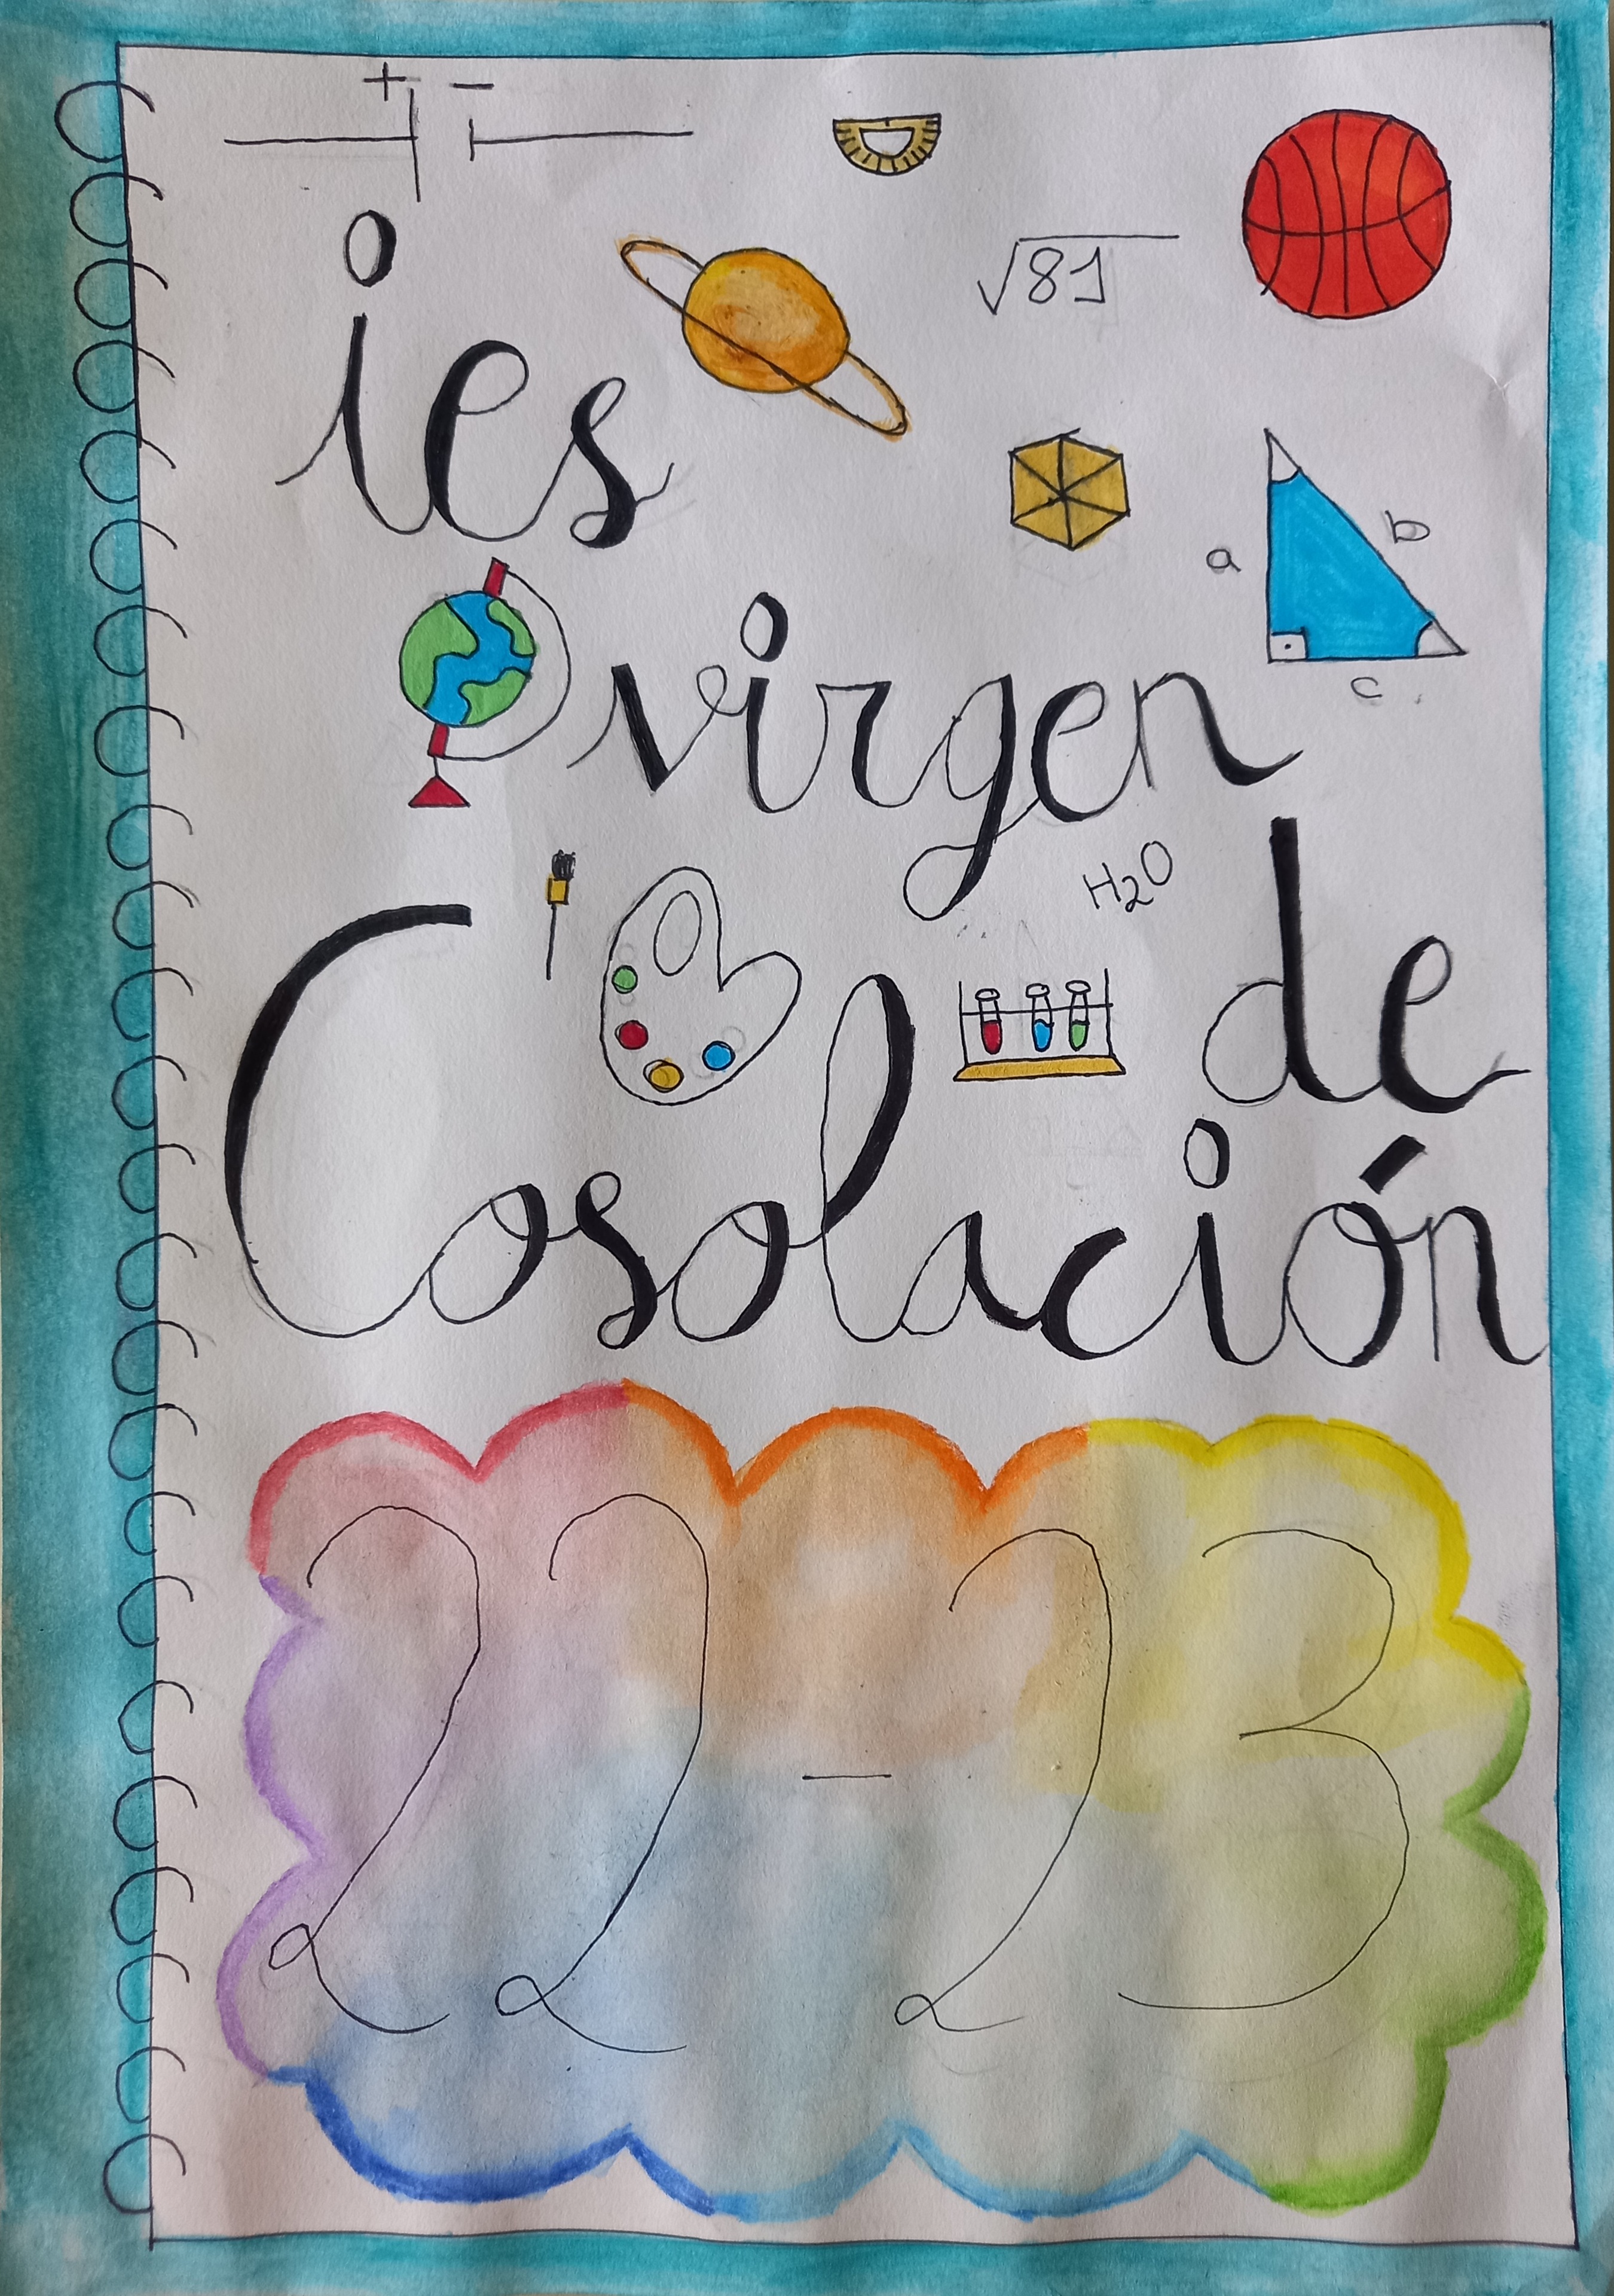 + -
√81
ies
a
b
c
virgen
H2O
de
Cosolación
22-23